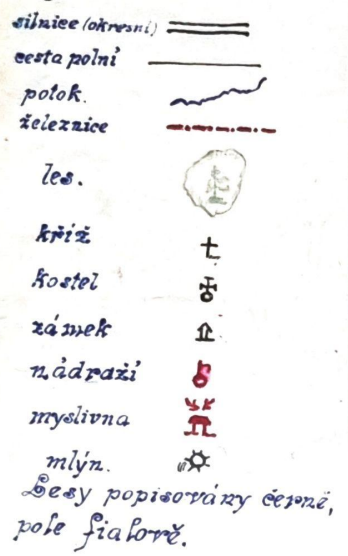 silnice (okresní)
cesta polní
potok.
železnice
les.
kříž
kostel
zámek
nádraží
myslivna
mlýn.
Lesy popisovány černě,
pole fialově.